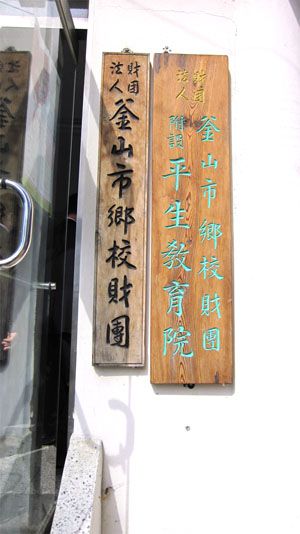 財團
法人
釜山市鄉校財團
財団
法人
釜山市鄉校財團
附設
平生敎育院